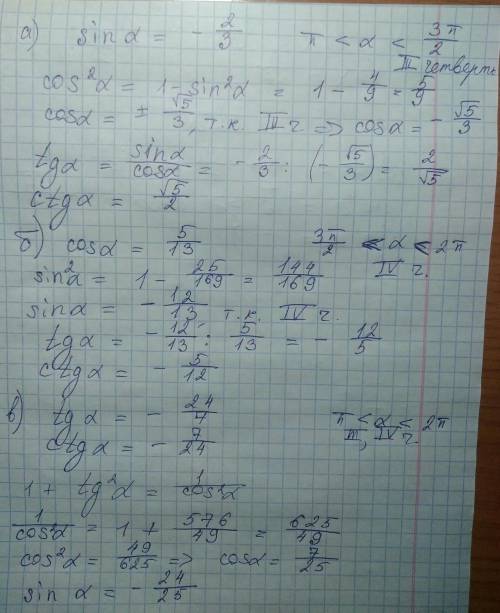 а) sin α = - 2/3    π < α < 3π/2
III четверть
cos²α = 1 - sin²α = 1 - 4/9 = 5/9
cos α = ± √5/3, т.к. III ч => cos α = - √5/3
tg α = sin α/cos α = - 2/3 : (- √5/3) = 2/√5
ctg α = √5/2
б) cos α = 5/13    3π/2 < α < 2π
IV ч.
sin²α = 1 - 25/169 = 144/169
sin α = - 12/13 т.к. IV ч.
tg α = - 12/13 : 5/13 = - 12/5
ctg α = - 5/12
в) tg α = - 24/7    π < α < 2π
ctg α = - 7/24    III, IV ч.
1 + tg²α = 1/cos²α
1/cos²α = 1 + 576/49 = 625/49
cos²α = 49/625 => cos α = 7/25
sin α = - 24/25